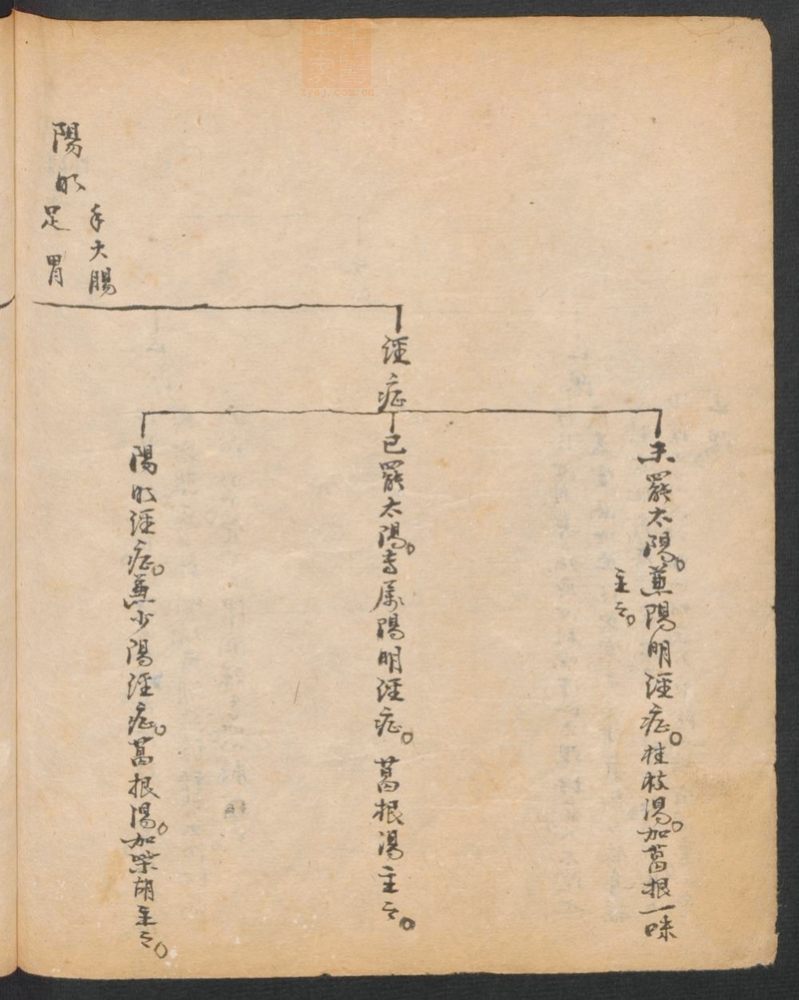 未罷太陽。兼陽明經症。桂枝湯。加葛根一味
主之。
經症
已罷太陽。專屬陽明經症。葛根湯主之。
陽明經症。兼少陽經症。葛根湯。加柴胡主之。
手大腸
陽明足胃